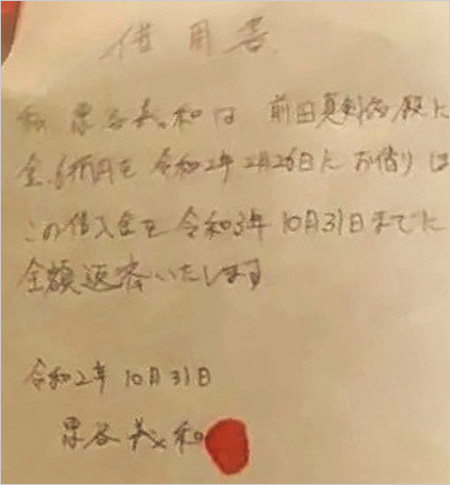 借用書
私 栗谷義和は 前田真利 殿に
金 万円を 令和2年2月26日に お借りし
この借入金を 令和3年10月31日までに
全額返済いたします
令和2年10月31日
栗谷義和